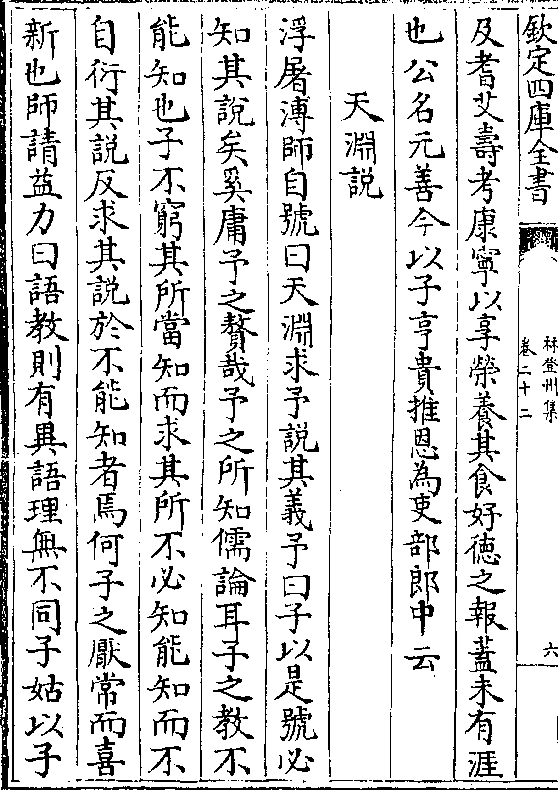 欽定四庫全書
林登州集
卷二十二
六
及耆艾壽考康寧以享榮養其食好德之報蓋未有涯
也公名元善今以子亨貴推恩為吏部郎中云
天淵説
浮屠溥師自號曰天淵求予説其義予曰子以是號必
知其説矣奚庸予之贅哉予之所知儒論耳子之教不
能知也子不窮其所當知而求其所不必知能知而不
自衍其説反求其説於不能知者焉何子之厭常而喜
新也師請益力曰語教則有異語理無不同子姑以子